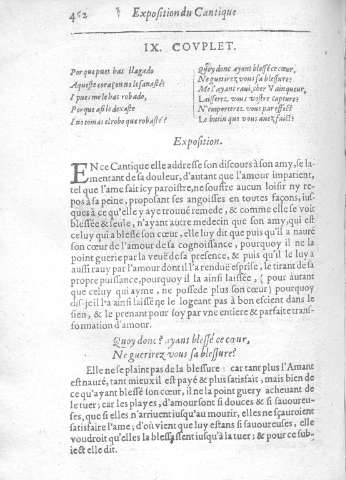 452 Exposition du Cantique
IX. COVPLET.
Por que pues has llagado
Aqueste coraçon no le sanaste?
I pues me le has robado,
Porque assi le dexaste
I no tomas el robo que robaste?
Quoy donc ayant blessé ce cœur,
Ne guerirez vous sa blessure?
Me l'ayant raui, cher Vainqueur,
Laisserez vous vostre capture?
N'emporterez vous par effect
Le butin que vous auez faict?
Exposition.
EN ce Cantique elle addresse son discours à son amy, se la-
mentant de sa douleur, d'autant que l'amour impatient,
tel que l'ame fait icy paroistre, ne souffre aucun loisir ny re-
pos à sa peine, proposant ses angoisses en toutes façons, ius-
ques à ce qu'elle y aye trouué remede, & comme elle se voit
blessée & seule, n'ayant autre medecin que son amy, qui est
celuy qui a blessé son cœur, elle luy dit que puis qu'il a nauré
son cœur de l'amour de sa cognoissance, pourquoy il ne la
point guerie par la veuë de sa presence, & puis qu'il le luy a
aussi rauy par l'amour dont il l'a renduë esprise, le tirant de sa
propre puissance, pourquoy il la ainsi laissée, ( pour autant
que celuy qui ayme, ne possede plus son cœur) pourquoy
dis-je il l'a ainsi laissé ne le logeant pas à bon escient dans le
sien, & le prenant pour soy par vne entiere & parfaite trans-
formation d'amour.
Quoy donc? ayant blessé ce cœur,
Ne guerirez vous sa blessure?
Elle ne se plaint pas de la blessure : car tant plus l'Amant
est nauré, tant mieux il est payé & plus satisfait, mais bien de
ce qu'ayant blessé son cœur, il ne la point guery acheuant de
le tuer; car les playes, d'amour sont si douces & si sauoureu-
ses, que si elles n'arriuent iusqu'au mourir, elles ne sçauroient
satisfaire l'ame; d'où vient que luy estans si sauoureuses, elle
voudroit qu'elles la blessassent iusqu'à la tuer; & pour ce sub-
iect elle dit.